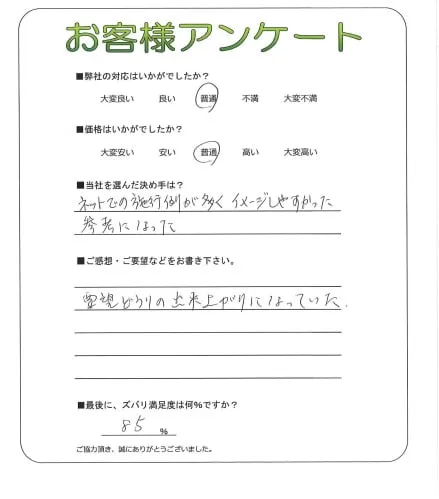 お客様アンケート
■弊社の対応はいかがでしたか?
大変良い 良い 普通 不満 大変不満
■価格はいかがでしたか?
大変安い 安い 普通 高い 大変高い
■当社を選んだ決め手は?
ネットでの施行例が多く イメージしやすかった
参考になった
■ご感想・ご要望などをお書き下さい。
要望どうりの出来上がりになっていた.
■最後に、ズバリ満足度は何%ですか?
85 %
ご協力頂き、誠にありがとうございました。